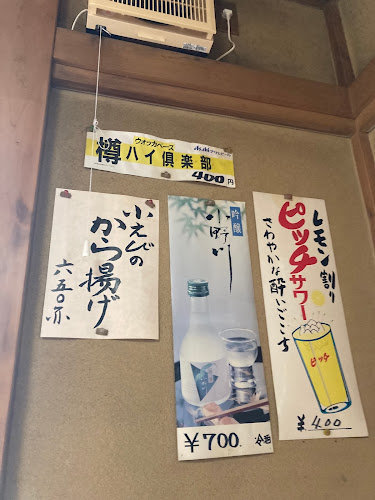 ウオッカベース
Asahi
樽ハイ倶楽部
400円
小えびの
から揚げ
六五〇円
吟醸
小野川
¥700
冷酒
レモン割り
ピッチサワー
さわやかな酔いごこち
ピッチ
¥400